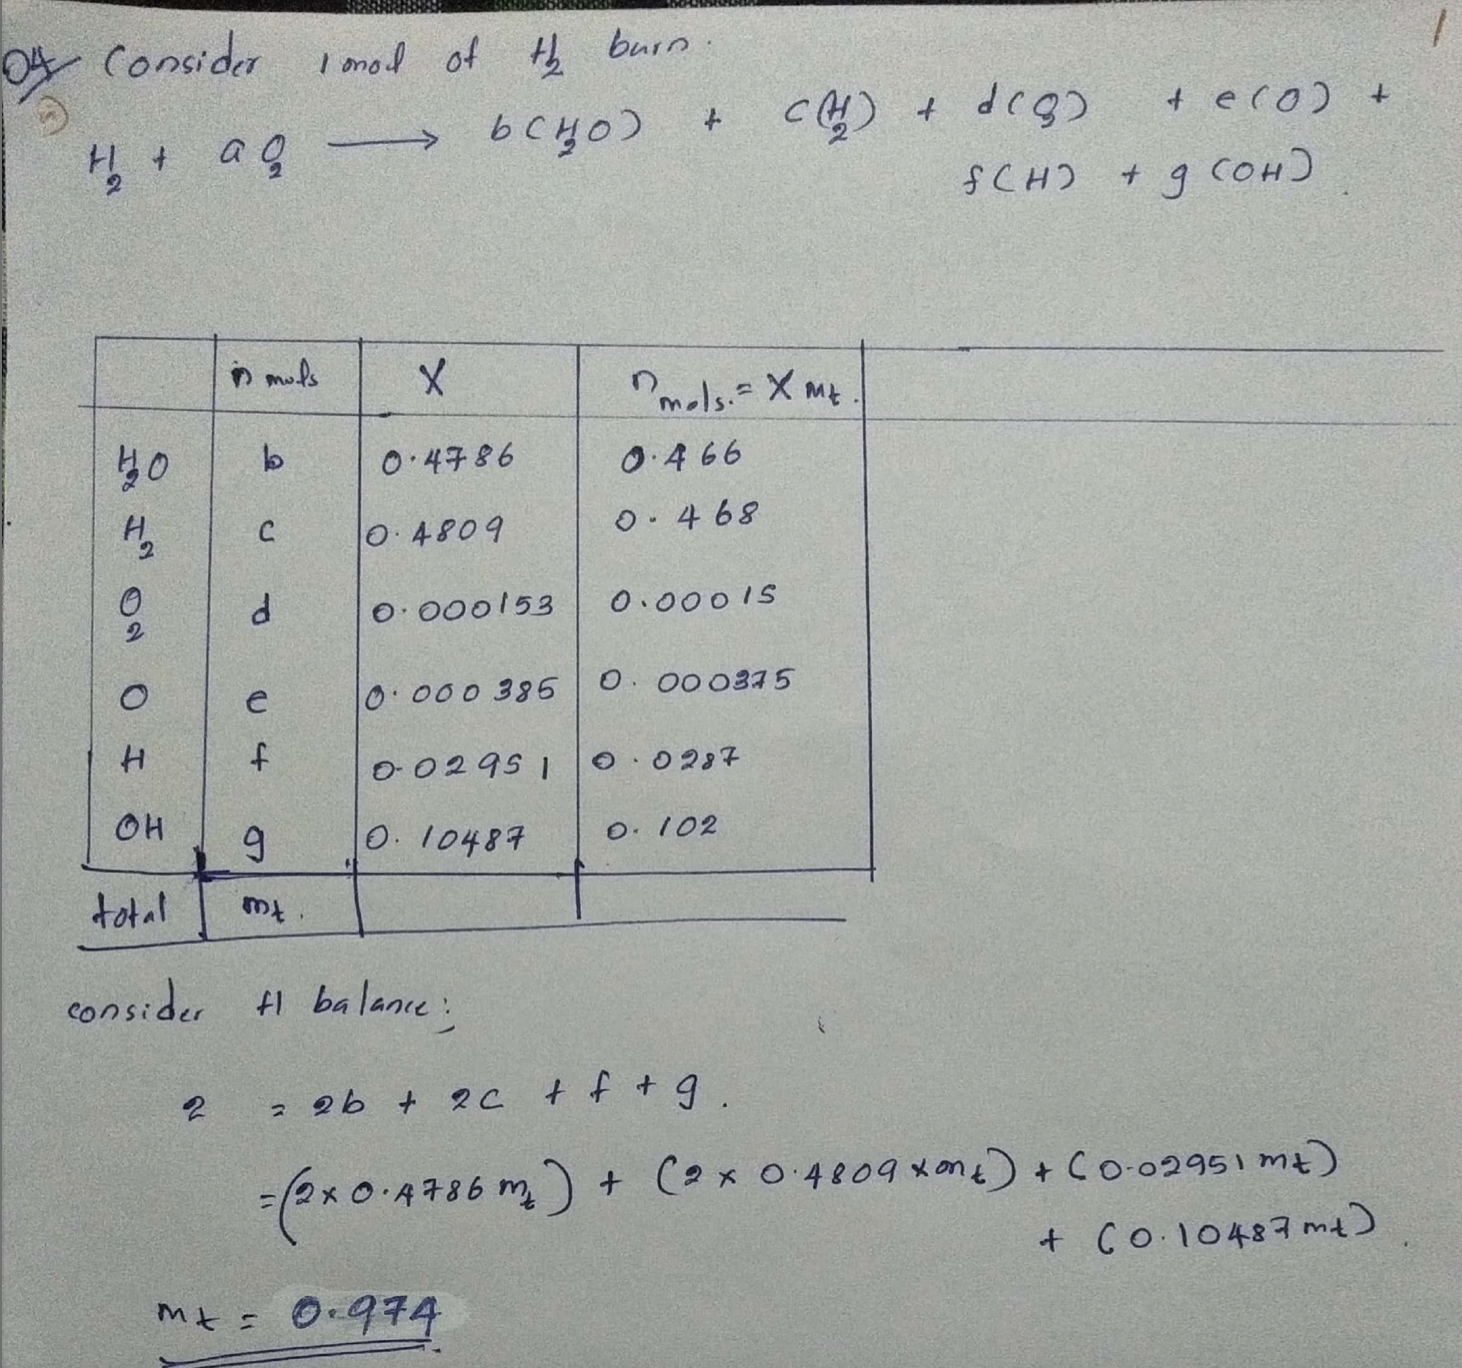 1
04 Consider 1 mol of H₂ burn.
a) H₂ + aO₂ → b(H₂O) + c(H₂) + d(O₂) + e(O) +
f(H) + g(OH).
n mols X n mols. = X mt.
H₂O b 0.4786 0.466
H₂ c 0.4809 0.468
O₂ d 0.000153 0.00015
O e 0.000385 0.000375
H f 0.02951 0.0287
OH g 0.10487 0.102
total mt.
consider H balance:
2 = 2b + 2c + f + g.
= (2 x 0.4786 mt) + (2 x 0.4809 x mt) + (0.02951 mt)
+ (0.10487 mt).
mt = 0.974